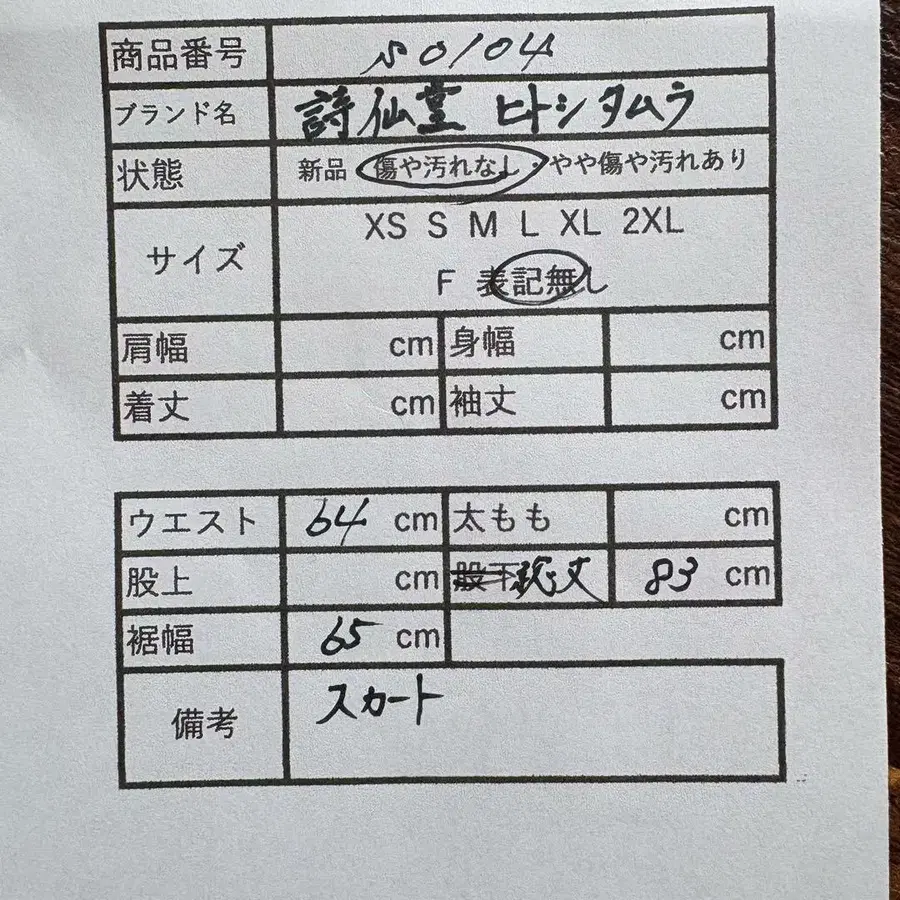 商品番号 s0104
ブランド名 詩仙堂 ヒトシタムラ
状態 新品 傷や汚れなし・やや傷や汚れあり
サイズ XS S M L XL 2XL
F 表記無し
肩幅 cm 身幅 cm
着丈 cm 袖丈 cm
ウエスト 64 cm 太もも cm
股上 cm 股下 総丈 83 cm
裾幅 65 cm
備考 スカート